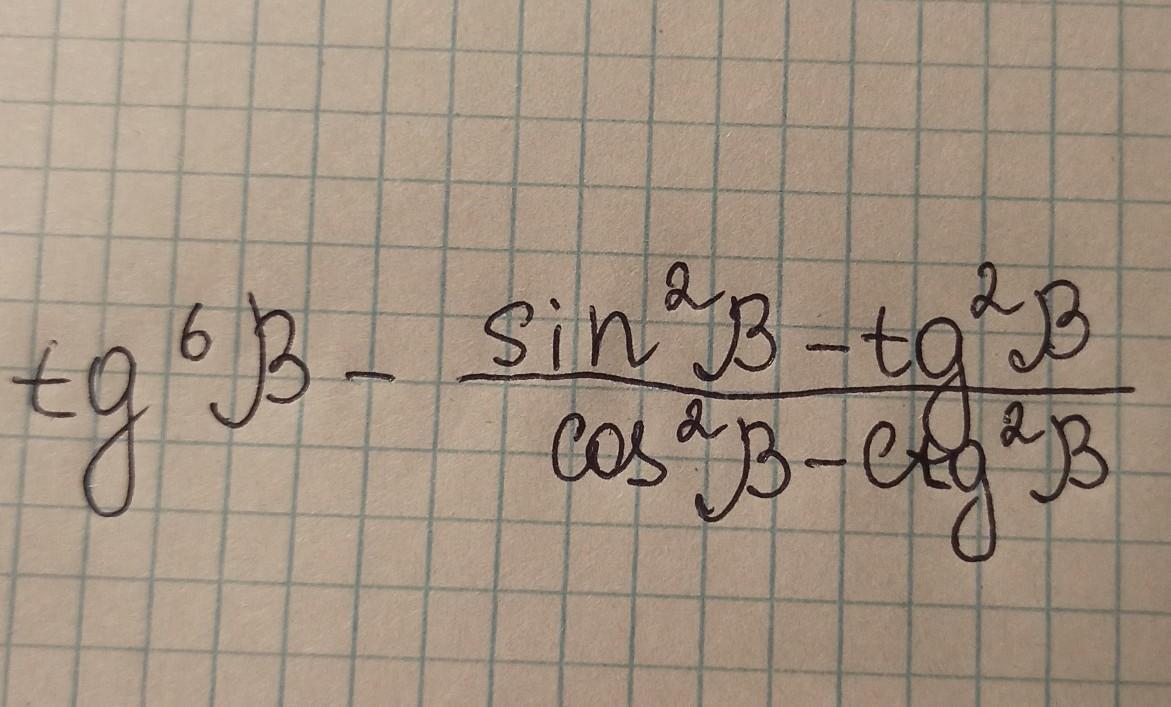 tg⁶β - (sin²β - tg²β)/(cos²β - ctg²β)